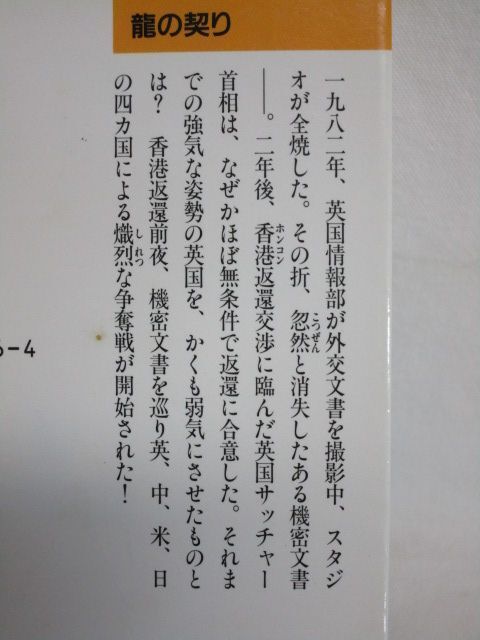 龍の契り
一九八二年、英国情報部が外交文書を撮影中、スタジ
オが全焼した。その折、忽然と消失したある機密文書
――。二年後、香港返還交渉に臨んだ英国サッチャー
首相は、なぜかほぼ無条件で返還に合意した。それま
での強気な姿勢の英国を、かくも弱気にさせたものと
は？　香港返還前夜、機密文書を巡り英、中、米、日
の四カ国による熾烈な争奪戦が開始された！
こつぜん
ホンコン
しれつ
-4